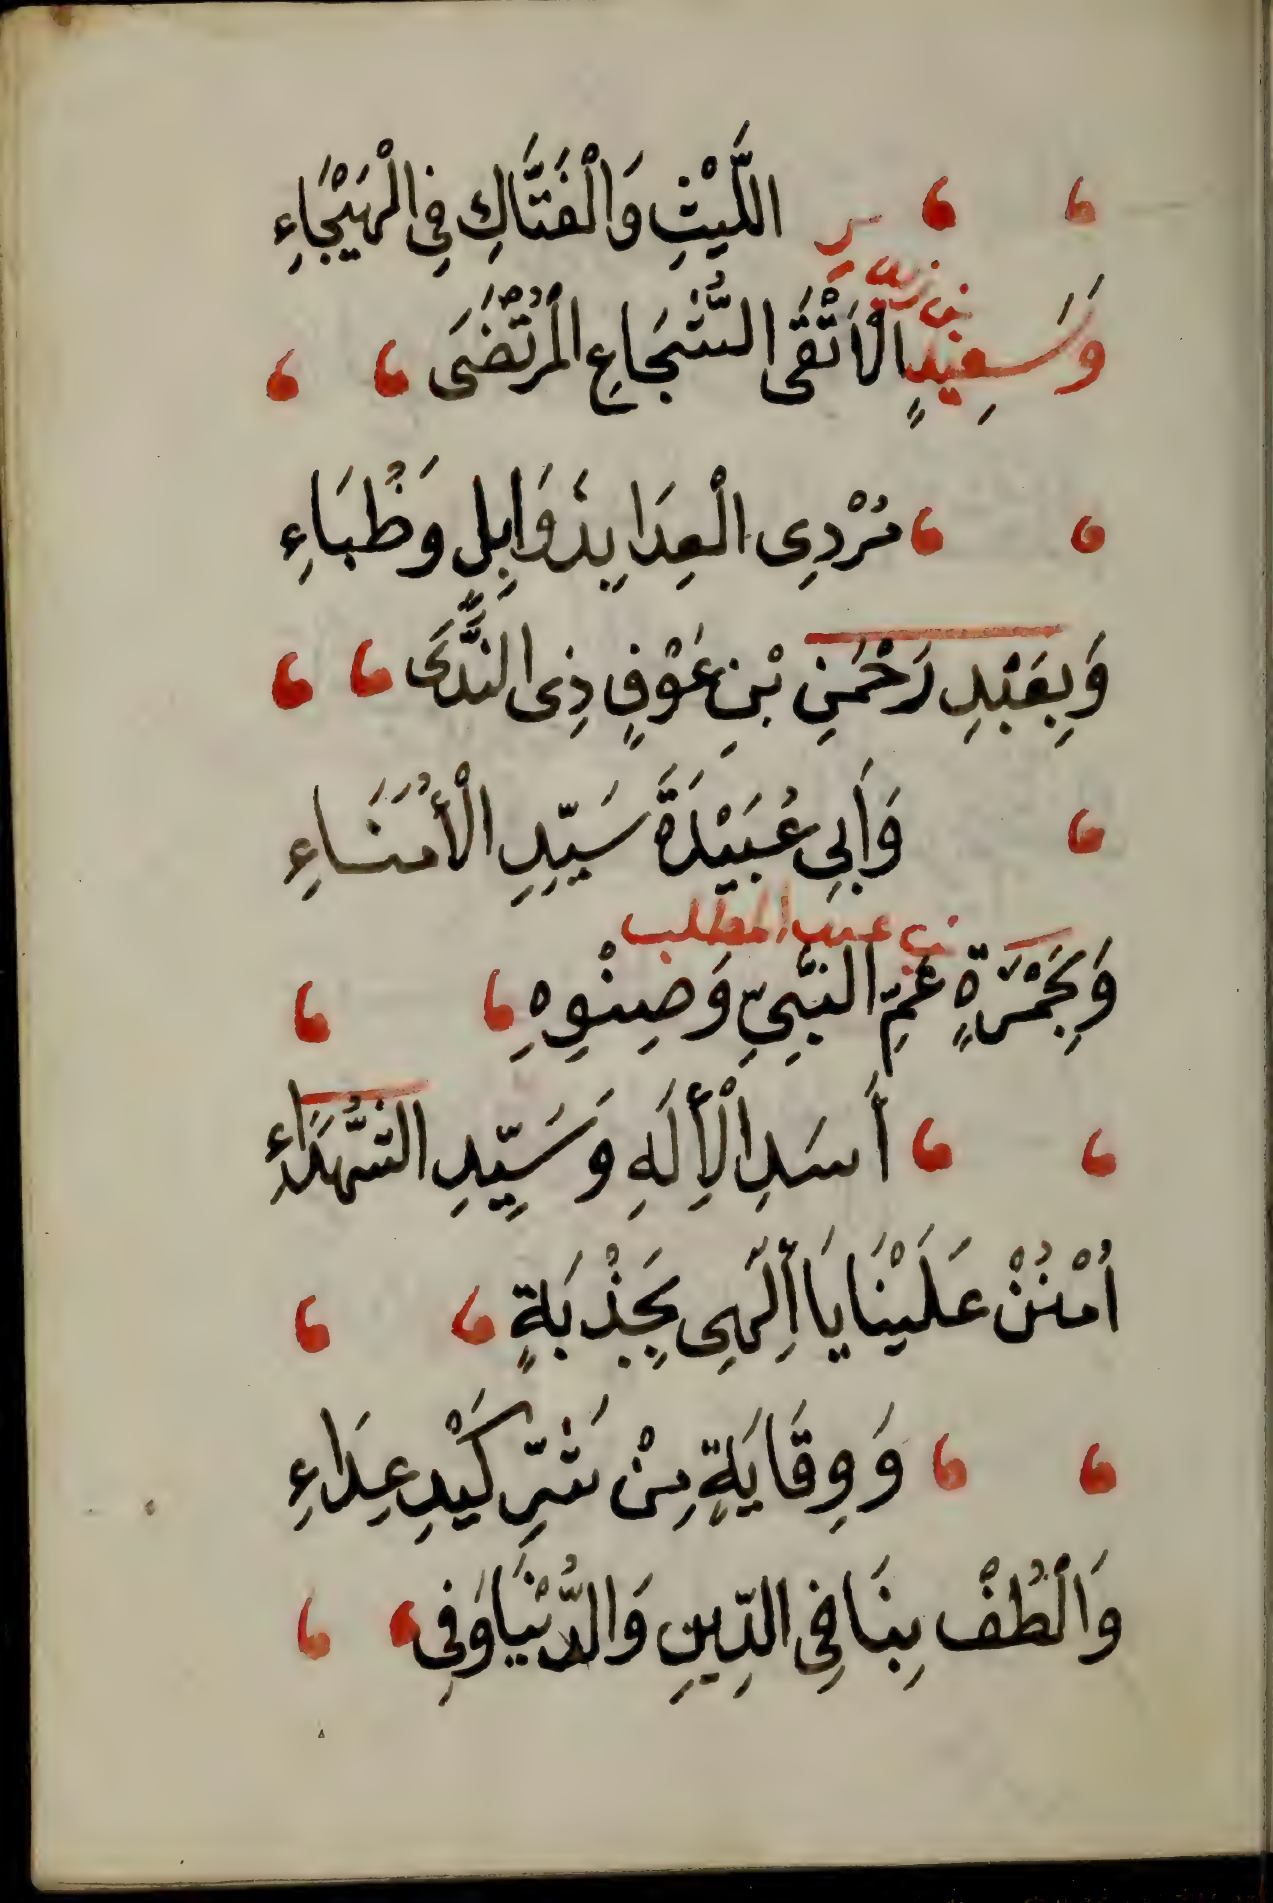 اللَّيْثِ وَالْفَتَّاكِ فِي الْهَيْجَاءِ
بن زيد
وَسَعِيْدٍ الْاَتْقَى الشُّجَاعِ الْمُرْتَضَى
مُرْدِى الْعِدَا بِذَوَابِلٍ وَظُبَاءِ
وَبِعَبْدِ رَحْمٰنِ بْنِ عَوْفٍ ذِى النَّدَى
وَأَبِي عُبَيْدَةَ سَيِّدِ الْأُمَنَاءِ
بن عبد المطلب
وَبِحَمْزَةٍ عَمِّ النَّبِيِّ وَصِنْوِهِ
أَسَدِ الْإِلَهِ وَسَيِّدِ الشُّهَدَاءِ
اُمْنُنْ عَلَيْنَا يَا اِلَهِى بِجَذْبَةٍ
وَوِقَايَةٍ مِنْ شَرِّ كَيْدِ عِدَاءِ
وَالْطُفْ بِنَا فِى الدِّينِ وَالدُّنْيَا وَفِى